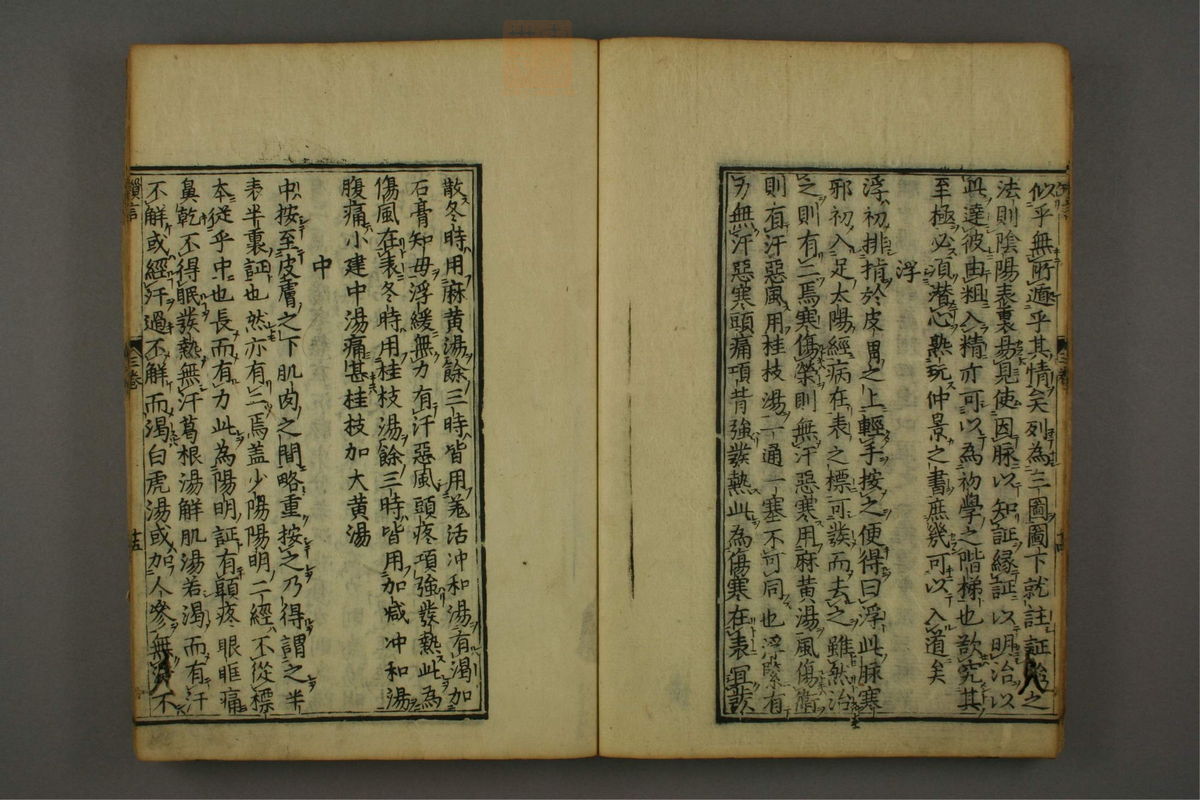 似乎無所遁乎其情矣列為三圖圖下就註証治之
法則陰陽表裏易見使因脉以知証縁証以明治以
此達彼由粗入精亦可以為初學之階梯也欲究其
至極必須潛心熟玩仲景之書庶幾可以入道矣
浮
浮初排指於皮膚之上輕手按之便得曰浮此脉寒
邪初入足太陽經病在表之標可發而去之雖然治
之則有二焉寒傷榮則無汗惡寒用麻黄湯風傷衛
則有汗惡風用桂枝湯一通一塞不可同也浮緊有
力無汗惡寒頭痛項背強發熱此為傷寒在表冝發
散冬時用麻黄湯餘三時皆用羌活冲和湯有渴加
石膏知毋浮緩無力有汗惡風頭疼項強發熱此為
傷風在表冬時用桂枝湯餘三時皆用加减冲和湯
腹痛小建中湯痛甚桂枝加大黄湯
中
中按至皮膚之下肌肉之間略重按之乃得謂之半
表半裏証也然亦有二焉盖少陽陽明二經不從標
本從乎中也長而有力此為陽明証有頭疼眼眶痛
鼻乾不得眠發熱無汗葛根湯解肌湯若渴而有汗
不解或經汗過不解而渴白虎湯或加人參無 不